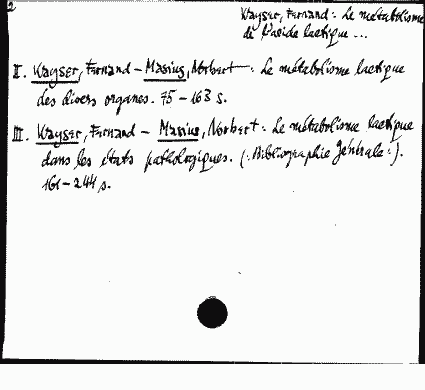 2
Kayser, Fernand: Le métabolisme
de l'acide lactique ...
II. Kayser, Fernand - Masius, Norbert: Le métabolisme lactique
des divers organes. 75 - 163 s.
III. Kayser, Fernand - Masius, Norbert: Le métabolisme lactique
dans les états pathologiques. (: Bibliographie générale :).
161 - 244 s.